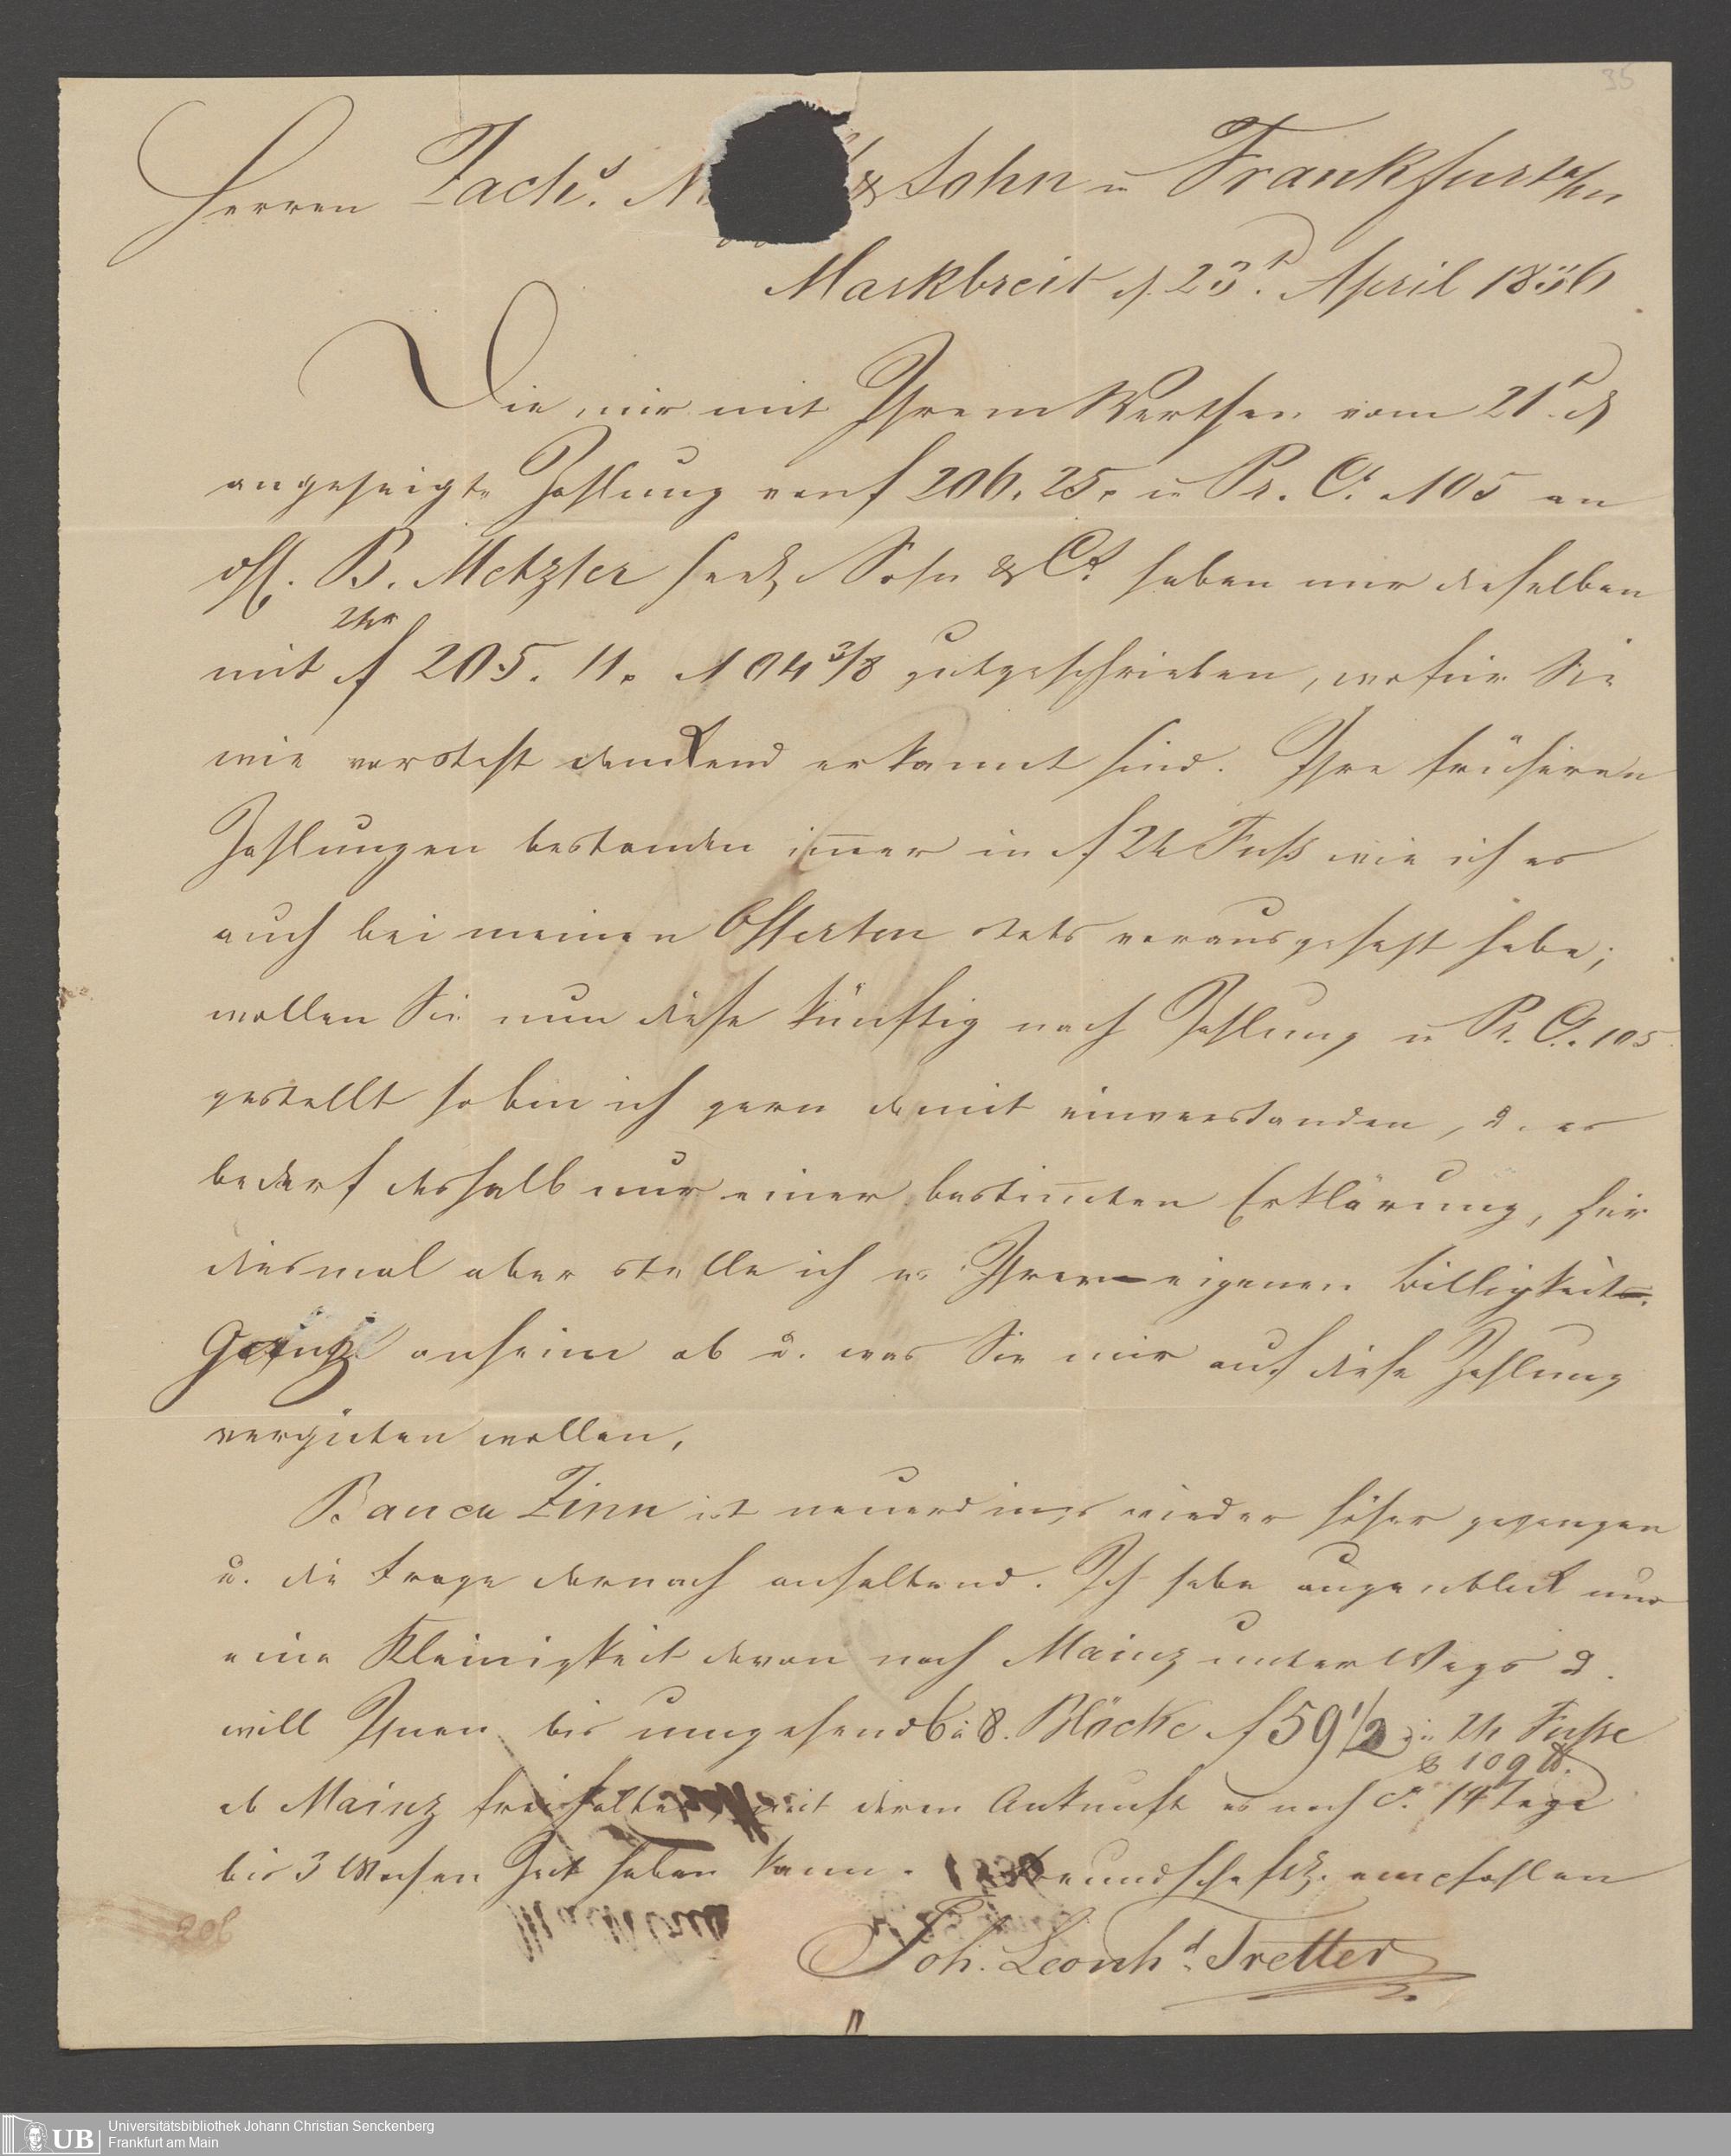 35
Herren Zachs. & Sohn in Frankfurt a/m
Markbreit d. 23t. April 1836
Die mir mit Ihrem Werthen vom 21t. d
angezeigte Zahlung von f 206. 25. in Pr. Ct. 105 an
H. B. Metzler seel. Sohn & Co haben mir dieselben
24er
mit f 205. 11. 104 3/8 gutgeschrieben, wofür Sie
wie dankend erkannt sind. Ihre früheren
Zahlungen bestanden immer in f 24 Fuß wie ich es
auch bei meinen Offerten stets vorausgesetzt habe;
wollen Sie nun diese künftig nach Zahlung in Pr. Ct. 105
gestellt so bin ich gern damit einverstanden, u. es
bedarf deshalb nur einer bestimten Erklärung, für
diesmal aber stelle ich es Ihrer eigenen Billigkeit
ganz anheim ob u. was Sie mir auf diese Zahlung
vergüten wollen,
Banca Zinn ist neuerdings wieder höher gegangen
u. die Frage darnach anhaltend. Ich habe augenblick nur
eine Kleinigkeit davon nach Mainz unter Wegs u.
will Ihnen bis umgehend 6 à 8. Blöcke f 59 1/2 in 24 Fusse
109 ℔.
ab Mainz frei halten, mit deren Ankunft es noch ca. 14 Tage
bis 3 Wochen Zeit haben kann. Freundschaftl. empfohlen
Joh. Leonhd. Tretter
206
Universitätsbibliothek Johann Christian Senckenberg
Frankfurt am Main
UB